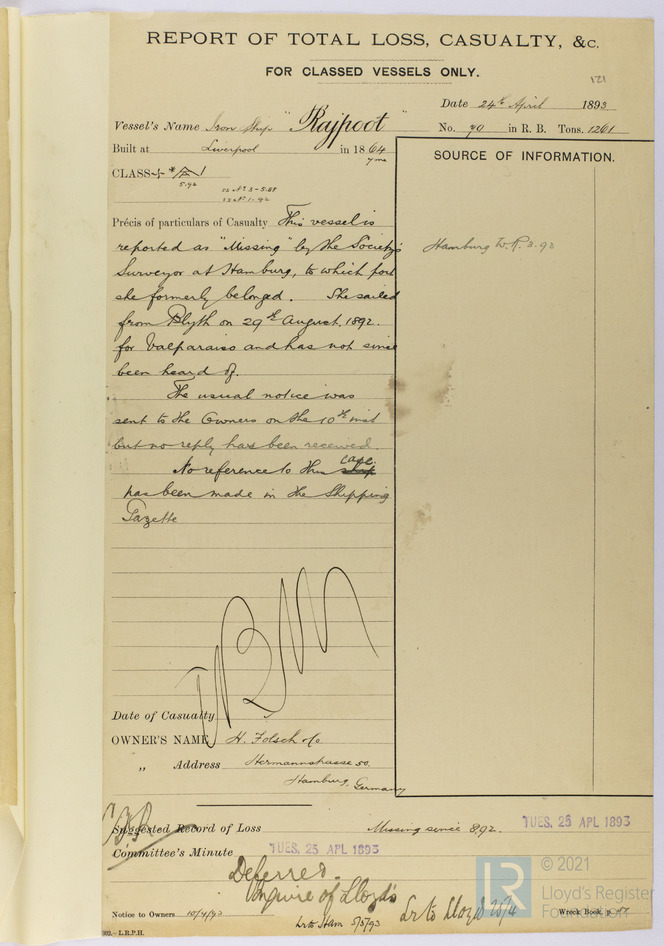 REPORT OF TOTAL LOSS, CASUALTY, &c.
FOR CLASSED VESSELS ONLY.
121
Date 24th April 1893
Vessel's Name Iron Ship "Rajpoot" No. 79 in R. B. Tons. 1261
Built at Liverpool in 1864
7 mo
SOURCE OF INFORMATION.
CLASS
5.92
ss No 3-5.88
ss No 1-92
Précis of particulars of Casualty This vessel is
reported as "Missing" by the Society's
Hamburg W.R. 3.92
Surveyor at Hamburg, to which port
she formerly belonged. She sailed
from Blyth on 29th August, 1892.
for Valparaiso and has not since
been heard of.
The usual notice was
sent to the Owners on the 10th inst
but no reply has been received.
No reference to this ship case
has been made in the Shipping
Gazette
Date of Casualty
OWNER'S NAME H. Folsch &co
„ Address Hermannstrasse 50.
Hamburg, Germany
Suggested Record of Loss Missing since 8.92. TUES. 25 APL 1893
Committee's Minute TUES. 25 APL 1893
Deferred.
Enquire of Lloyd's
Notice to Owners 10/4/93 Lr to Ham 5/5/93 Lr to Lloyd 26/4 Wreck Book, p.
© 2021
LR Lloyd's Register
Foundation
L.R.P.H.